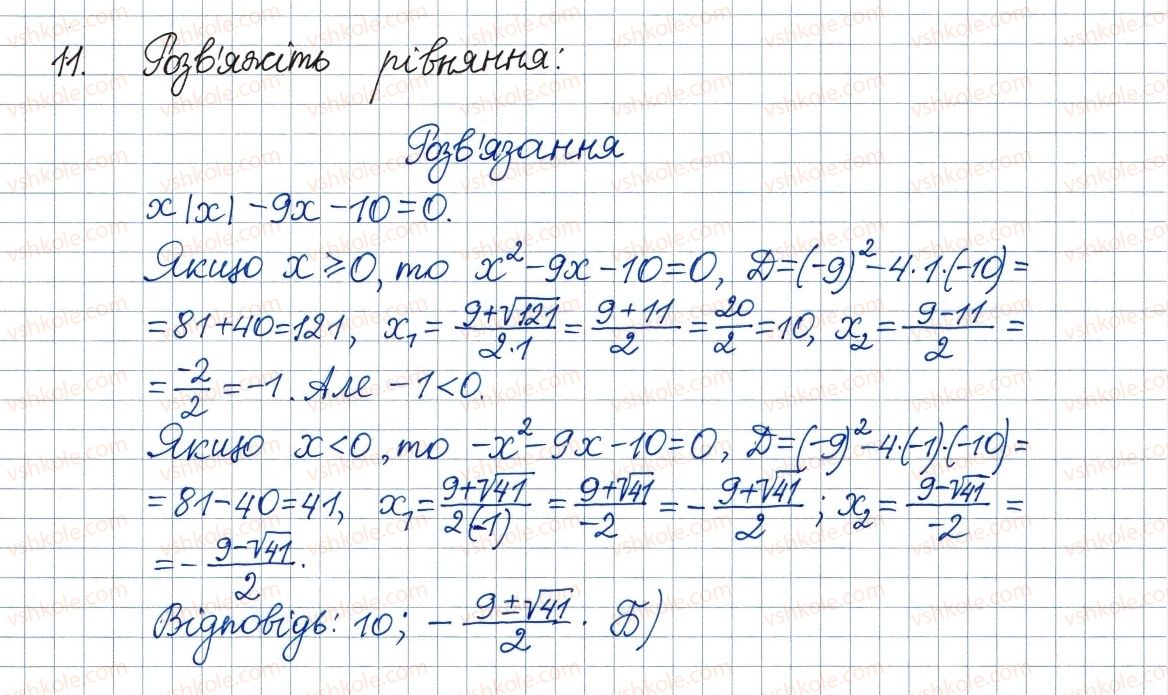 11. Розв'яжіть рівняння:
Розв'язання
x|x| - 9x - 10 = 0.
Якщо x ≥ 0, то x² - 9x - 10 = 0, Д = (-9)² - 4·1·(-10) =
= 81 + 40 = 121, x₁ = (9+√121)/(2·1) = (9+11)/2 = 20/2 = 10, x₂ = (9-11)/2 =
= -2/2 = -1. Але -1 < 0.
Якщо x < 0, то -x² - 9x - 10 = 0, Д = (-9)² - 4·(-1)·(-10) =
= 81 - 40 = 41, x₁ = (9+√41)/(2(-1)) = (9+√41)/(-2) = -(9+√41)/2; x₂ = (9-√41)/(-2) =
= -(9-√41)/2.
Відповідь: 10; -(9±√41)/2. Б)